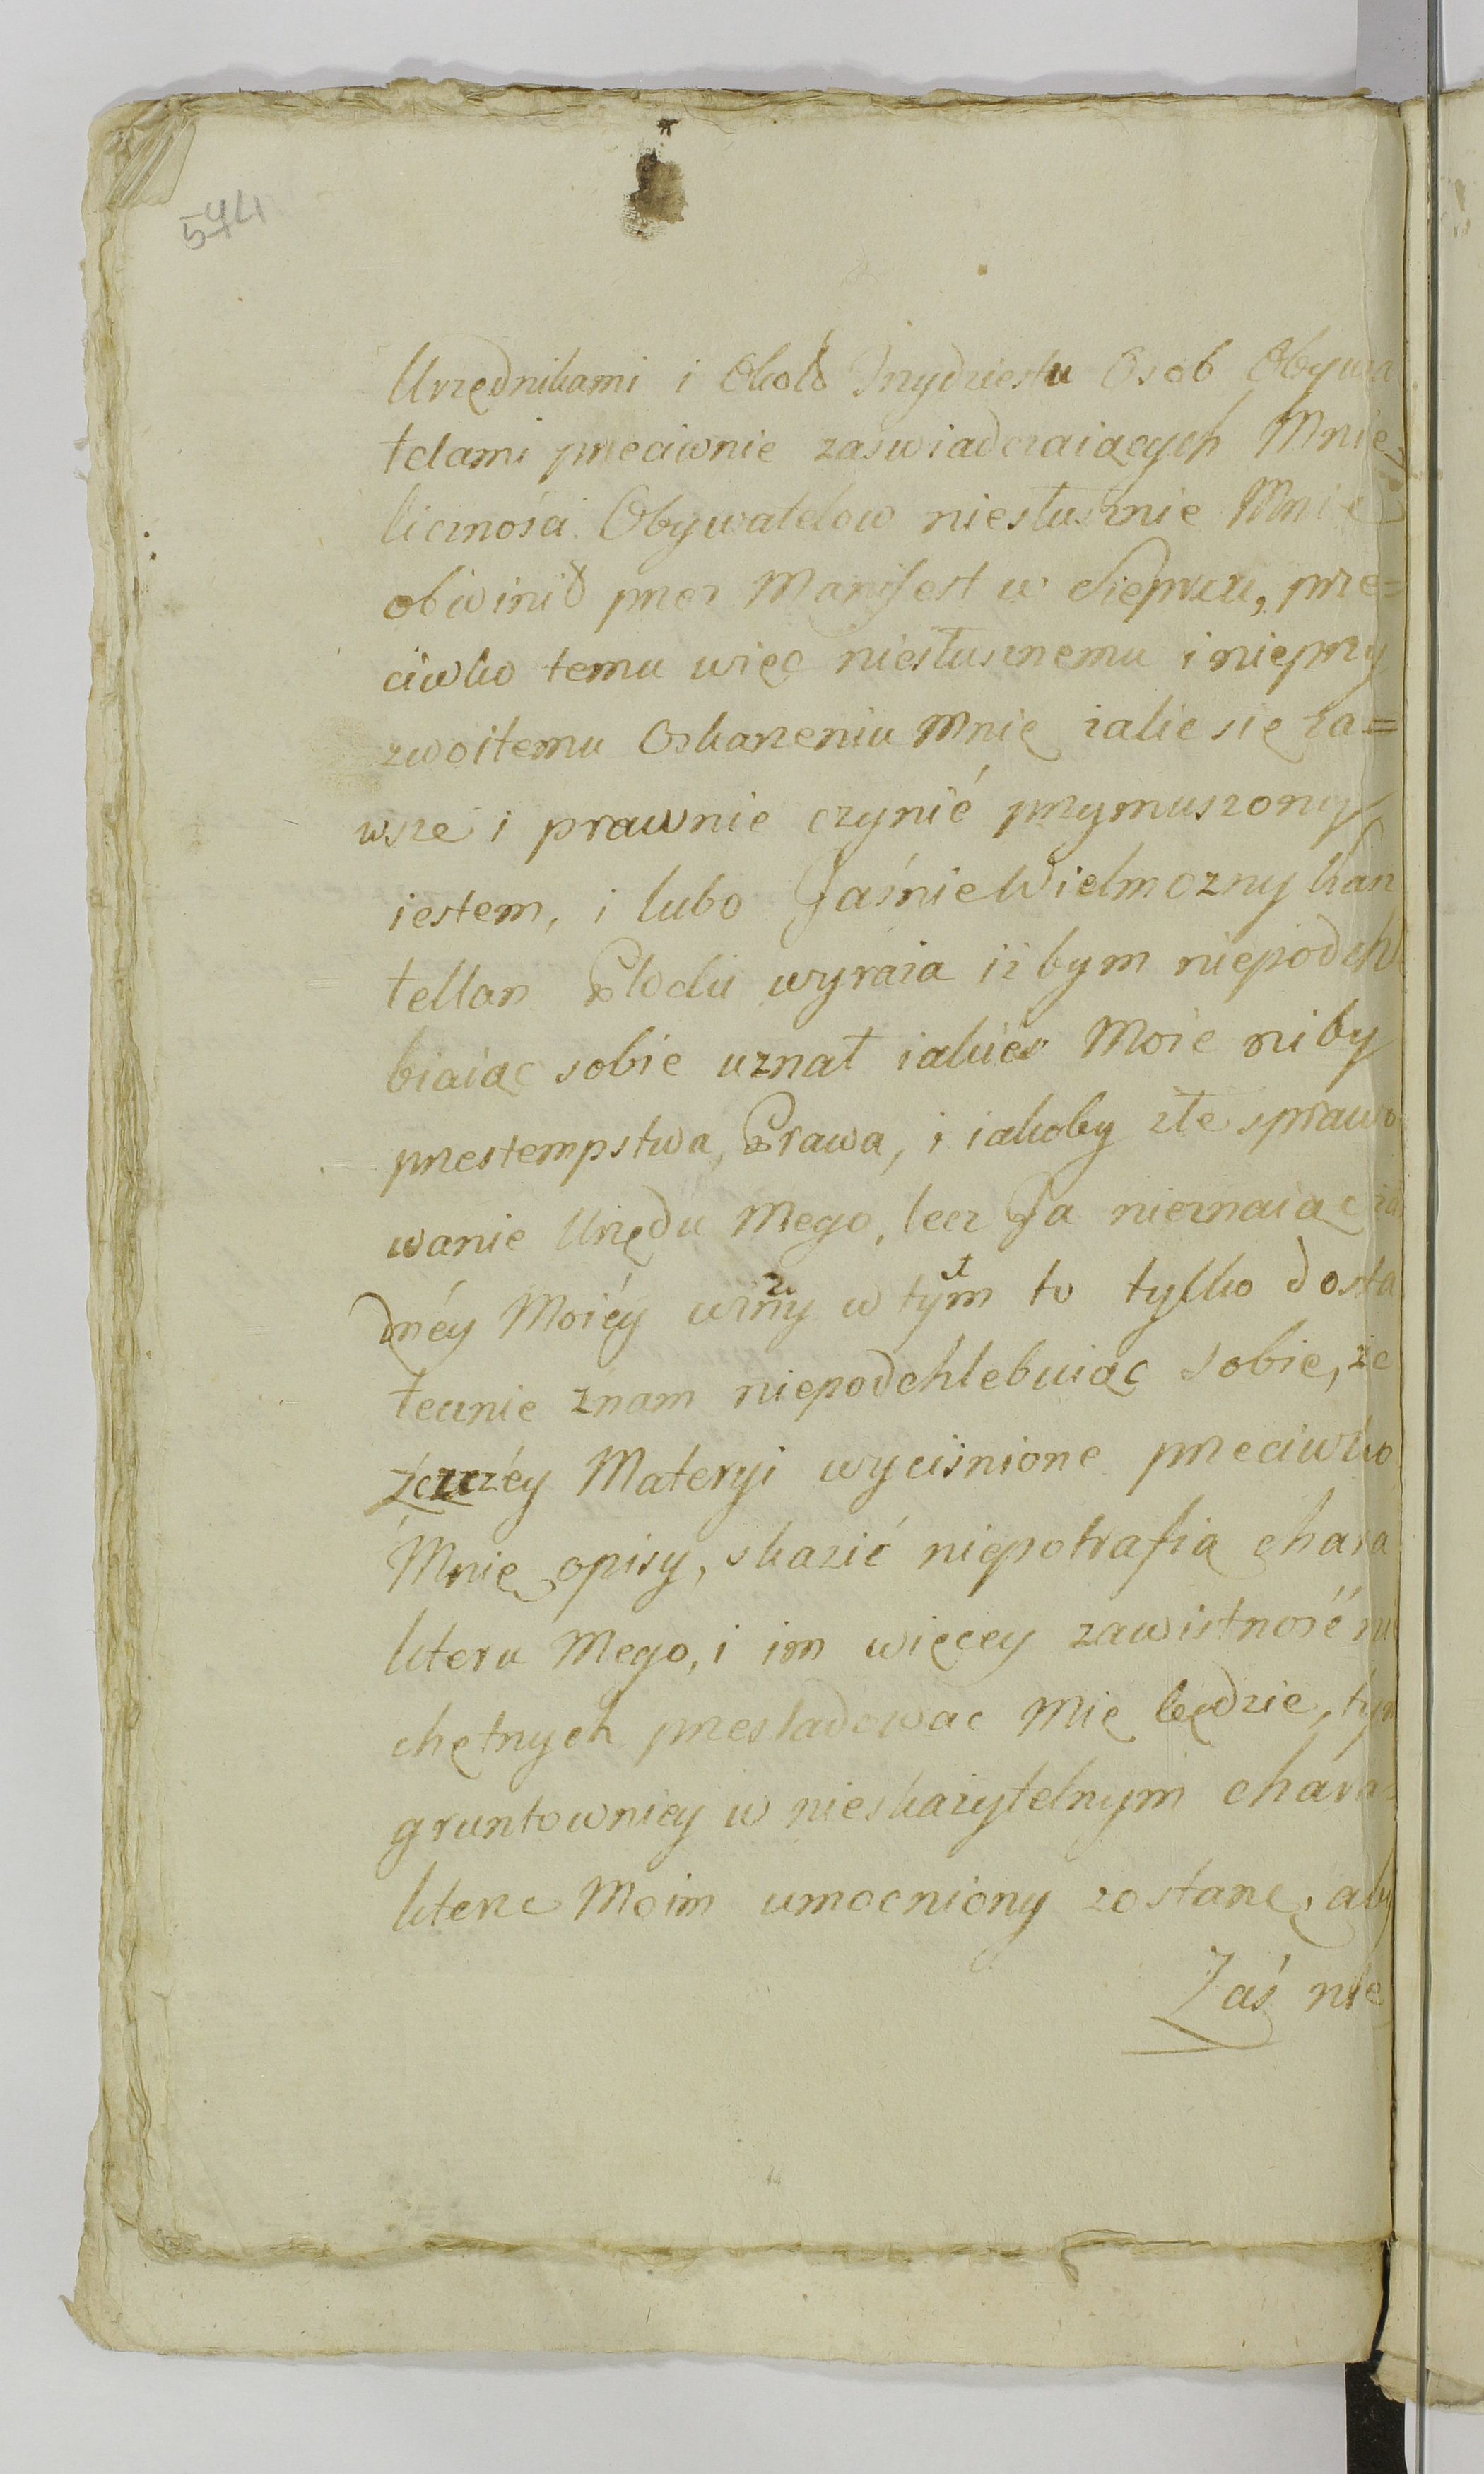 544
Urzędnikami i Około Trzydziestu Osob Obywa
telami przeciwnie zaswiadczaiących Mnie
liczności Obywatelow niesłusznie Mnie
obwinił przez Manifest w Sierpcu, prze=
ciwko temu więc niesłusznemu i nieprzy
zwoitemu Oskarzeniu Mnię żalić się za=
wsze i prawnie czynić przymuszony
iestem, i lubo JaśnieWielmozny Kasz
tellan Płocki wyraża iż bym niepodchle
biaiąc sobie uznał iakieś Moie niby
przestempstwa, Prawa, i iakoby złe sprawo
wanie Urzędu Mego, lecz Ja nieznaiąc ża
dnéy Moiéy winy w tym to tylko dosta
tecznie znam niepodchlebuiąc sobie, że
żczczéy Materyi wyciśnione przeciwko
Mnię opisy, skazić niepotrafią chara
kteru Mego, i im więcey zawistność nie
chętnych przesladowac Mię będzie, tym
gruntowniey w nieskazytelnym chara=
kterze Moim umocniony zostanę, aby
Zaś nie